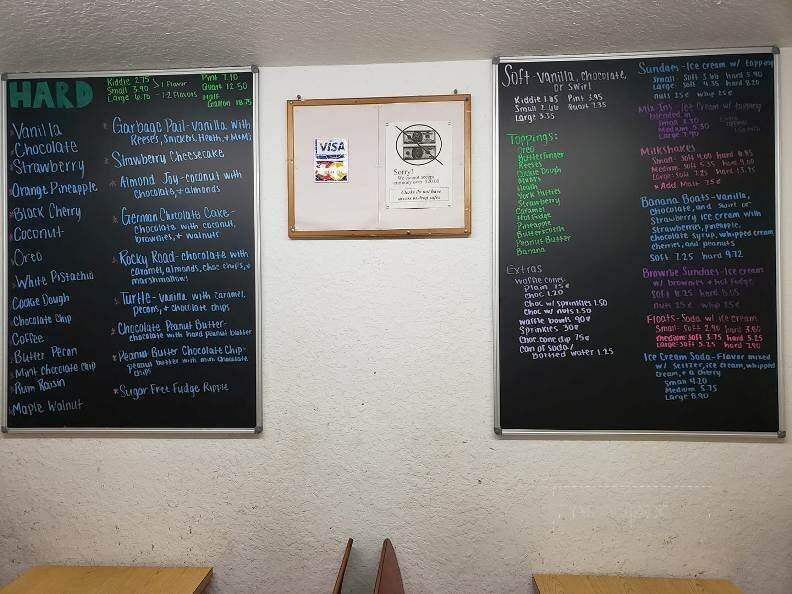 HARD
Kiddie 2.75
Small 3.90 > 1 Flavor
Large 6.70 - 1-2 Flavors
Pint 7.10
Quart 12.50
Half
Gallon 18.75
Vanilla
Chocolate
Strawberry
Orange Pineapple
Black Cherry
Coconut
Oreo
White Pistachio
Cookie Dough
Chocolate Chip
Coffee
Butter Pecan
Mint Chocolate Chip
Rum Raisin
Maple Walnut
Garbage Pail-vanilla with
Reeses, Snickers, Heath, + M+Ms
Strawberry Cheesecake
Almond Joy-coconut with
chocolate, + almonds
German Chocolate Cake-
chocolate with coconut,
brownies, + walnuts
Rocky Road-chocolate with
caramel, almonds, choc chips, +
marshmallow
Turtle-vanilla with caramel,
pecans, + chocolate chips
Chocolate Peanut Butter-
chocolate with hard peanut butter
Peanut Butter Chocolate Chip-
peanut butter with mini chocolate
chips
Sugar Free Fudge Ripple
VISA
Sorry!
We cannot accept
Checks do not have
access to drop safes
Soft-Vanilla, Chocolate,
or Swirl
Kiddie 1.85 Pint 3.95
Small 2.60 Quart 7.35
Large 3.35
Toppings:
Oreo
Butterfinger
Reeses
Cookie Dough
M+Ms
Heath
York Patties
Strawberry
Caramel
Hot Fudge
Pineapple
Butterscotch
Peanut Butter
Banana
Extras
Waffle cones-
Plain 75¢
Choc 1.20
Choc w/ sprinkles 1.50
Choc w/ nuts 1.50
Waffle bowls 90¢
Sprinkles 30¢
Choc cone dip 75¢
Can of soda/
Bottled water 1.25
Sundaes-Ice cream w/ topping
Small- Soft hard 5.90
Large- soft hard 8.20
nuts 25¢ whip 25¢
Mix-Ins-Ice Cream w/ topping
blended in
Small
Medium 5.30
Large
Milkshakes
Small- soft 4.00 hard
Medium- soft hard
Large- soft 7.25 hard
* Add Malt 75¢
Banana Boats-Vanilla,
chocolate, and swirl or
strawberry ice cream with
strawberries, pineapple,
chocolate syrup, whipped cream
cherries, and peanuts
soft 7.25 hard 9.72
Brownie Sundaes-Ice cream
w/ brownies + hot fudge
soft hard
nuts 25¢ whip 25¢
Floats-Soda w/ ice cream
Small- soft 2.90 hard
Medium- soft 3.75 hard 5.25
Large- soft 5.25 hard 7.90
Ice Cream Soda-Flavor mixed
w/ Seltzer, ice cream, whipped
cream, + a cherry
Small 4.20
Medium 5.75
Large 8.90